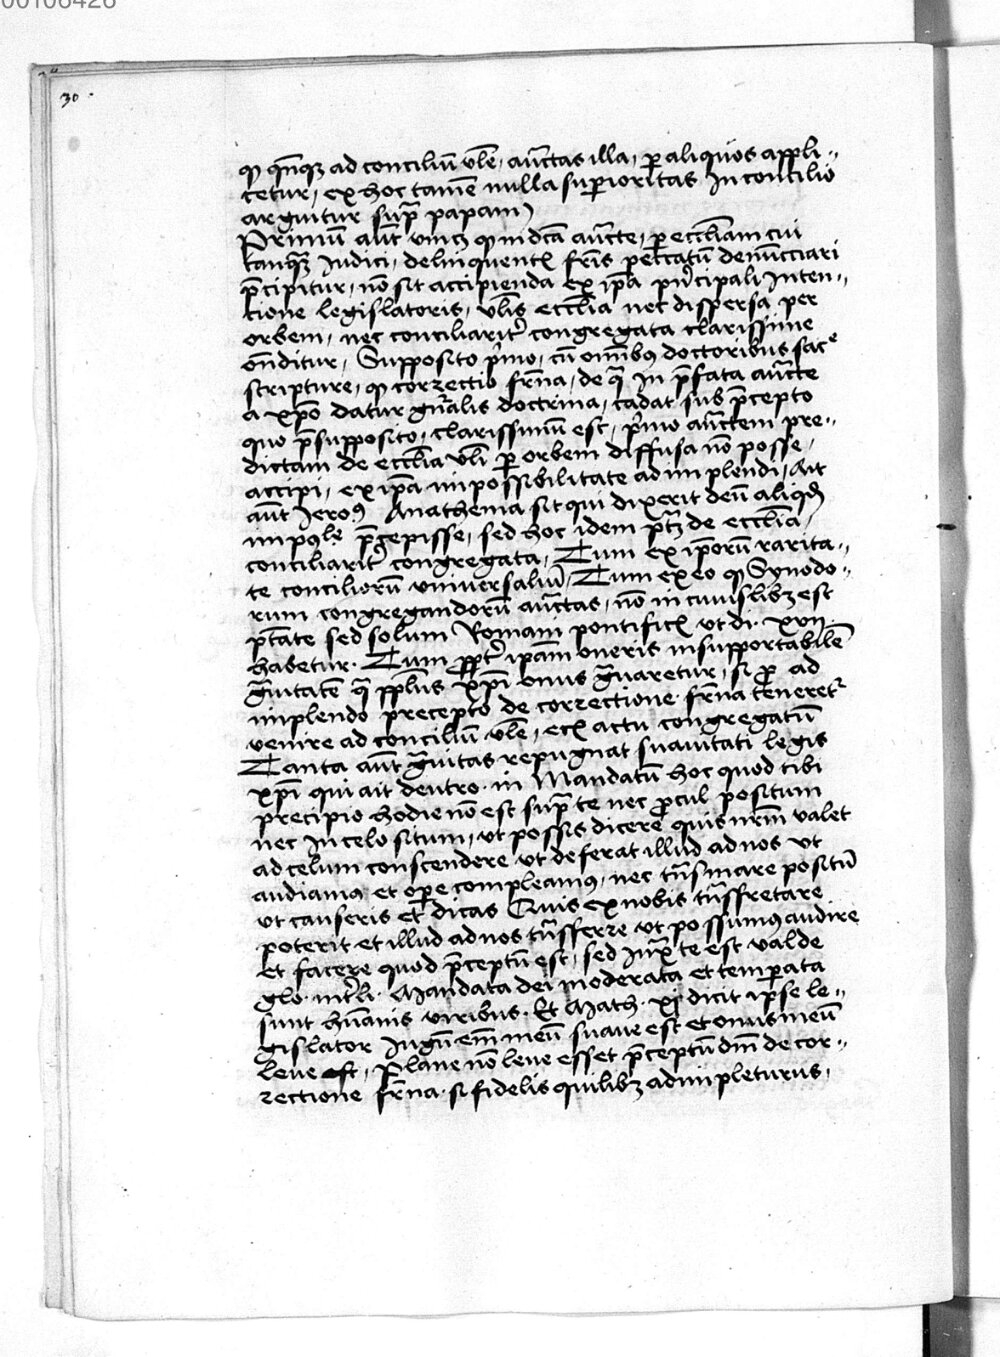 00106426
30
ꝙ qn̄qꝫ ad conciliū vl̄e, auc̄tas illa, ꝑ aliquos appli¨
cetur, ex hoc tamē nulla suꝑioritas In concilio
arguitur sup̄ papam)
Primū aūt vincꝫ ꝙ in dc̄a auc̄te, ꝑ eccl̄iam cui
tanqꝫ Iudici, delinquentꝭ fr̄is peccatū denūcciari
p̄cipitur, nō sit accipienda ex ip̄a pn̄cipali Inten¨
tione legislatoris, vl̄is eccl̄ia nec dispersa per
orbem, nec conciliarit̾ congregata clarissime
on̄ditur, Supposito p̾mo, cū om̄ibꝰ doctoribus sac̄e
scripture, ꝙ correctio fr̄na, de qᷓ in p̄fata auc̄te
a xp̄o datur gn̄alis doctrina, cadat sub p̄cepto
quo p̄supposito, clarissimū est, p̾mo auc̄tem pre¨
dictam de eccl̄ia vl̄i ꝑ orbem diffusa nō posse,
accipi, ex ip̄a impossibilitate adimplendi, Ait
aūt Ieroꝰ Anathema sit qui dixerit deū aliqd̄
impol̄e p̄cepisse, sed hoc idem ptꝫ de eccl̄ia,
conciliarit̾ congregata, Tum ex ip̄orū rarita¨
te conciliorū vniuersaliū, Tum ex eo ꝙ Synodo¨
rum congregandorū auc̄tas, nō in cuiuslibꝫ est
ptāte sed solum Romani pontificꝭ vt di. xvii
habetur. Tum ꝓpt̾ ip̄am oneris insupportabilē
gᷓuitatē qᷓ ppl̄us xp̄i onus gᷓuaretur, si ꝓ ad
implendo precepto de correctione fr̄na teneret̾
venire ad conciliū vl̄e, etꝭ actu congregatū
Tanta aūt gᷓuitas repugnat suauitati legis
xp̄i qui ait deutro. in Mandatū hoc quod tibi
precipio hodie nō est sup̄ te nec ꝓcul positum
nec In celo situm, vt possis dicere quis nr̄m valet
ad celum conscendere vt deferat illud ad nos vt
audiamꝰ et oꝑe compleamꝰ, nec trn̄smare positū
vt causeris et dicas Quis ex nobis trn̄sfretare
poterit et illud ad nos trn̄sferre vt possumꝰ audire
et facere quod p̄ceptū est, sed Iuxᷓ te est valde
glo. int̾li. Mandata dei moderata et temꝑata
sunt hūanis viribus. Et Math. xi dicit ip̄se le¨
gislator Iugū em̄ meū suaue est et onus meū
leue est, Plane nō leue esset p̄ceptū dn̄i de cor¨
rectione fr̄na. si fidelis quilibꝫ adimpleturus,